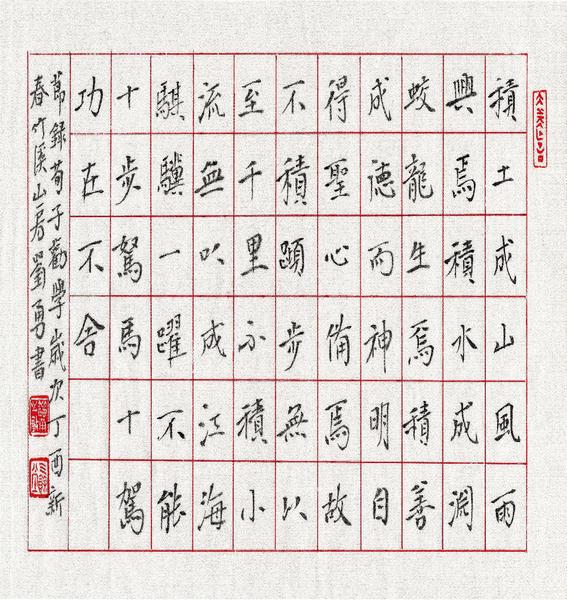 積土成山風雨
興焉積水成淵
蛟龍生焉積善
成德而神明自
得聖心備焉故
不積蹞步無以
至千里不積小
流無以成江海
騏驥一躍不能
十步駑馬十駕
功在不舍
節錄荀子勸學歲次丁酉新
春竹溪山房蜀勇書